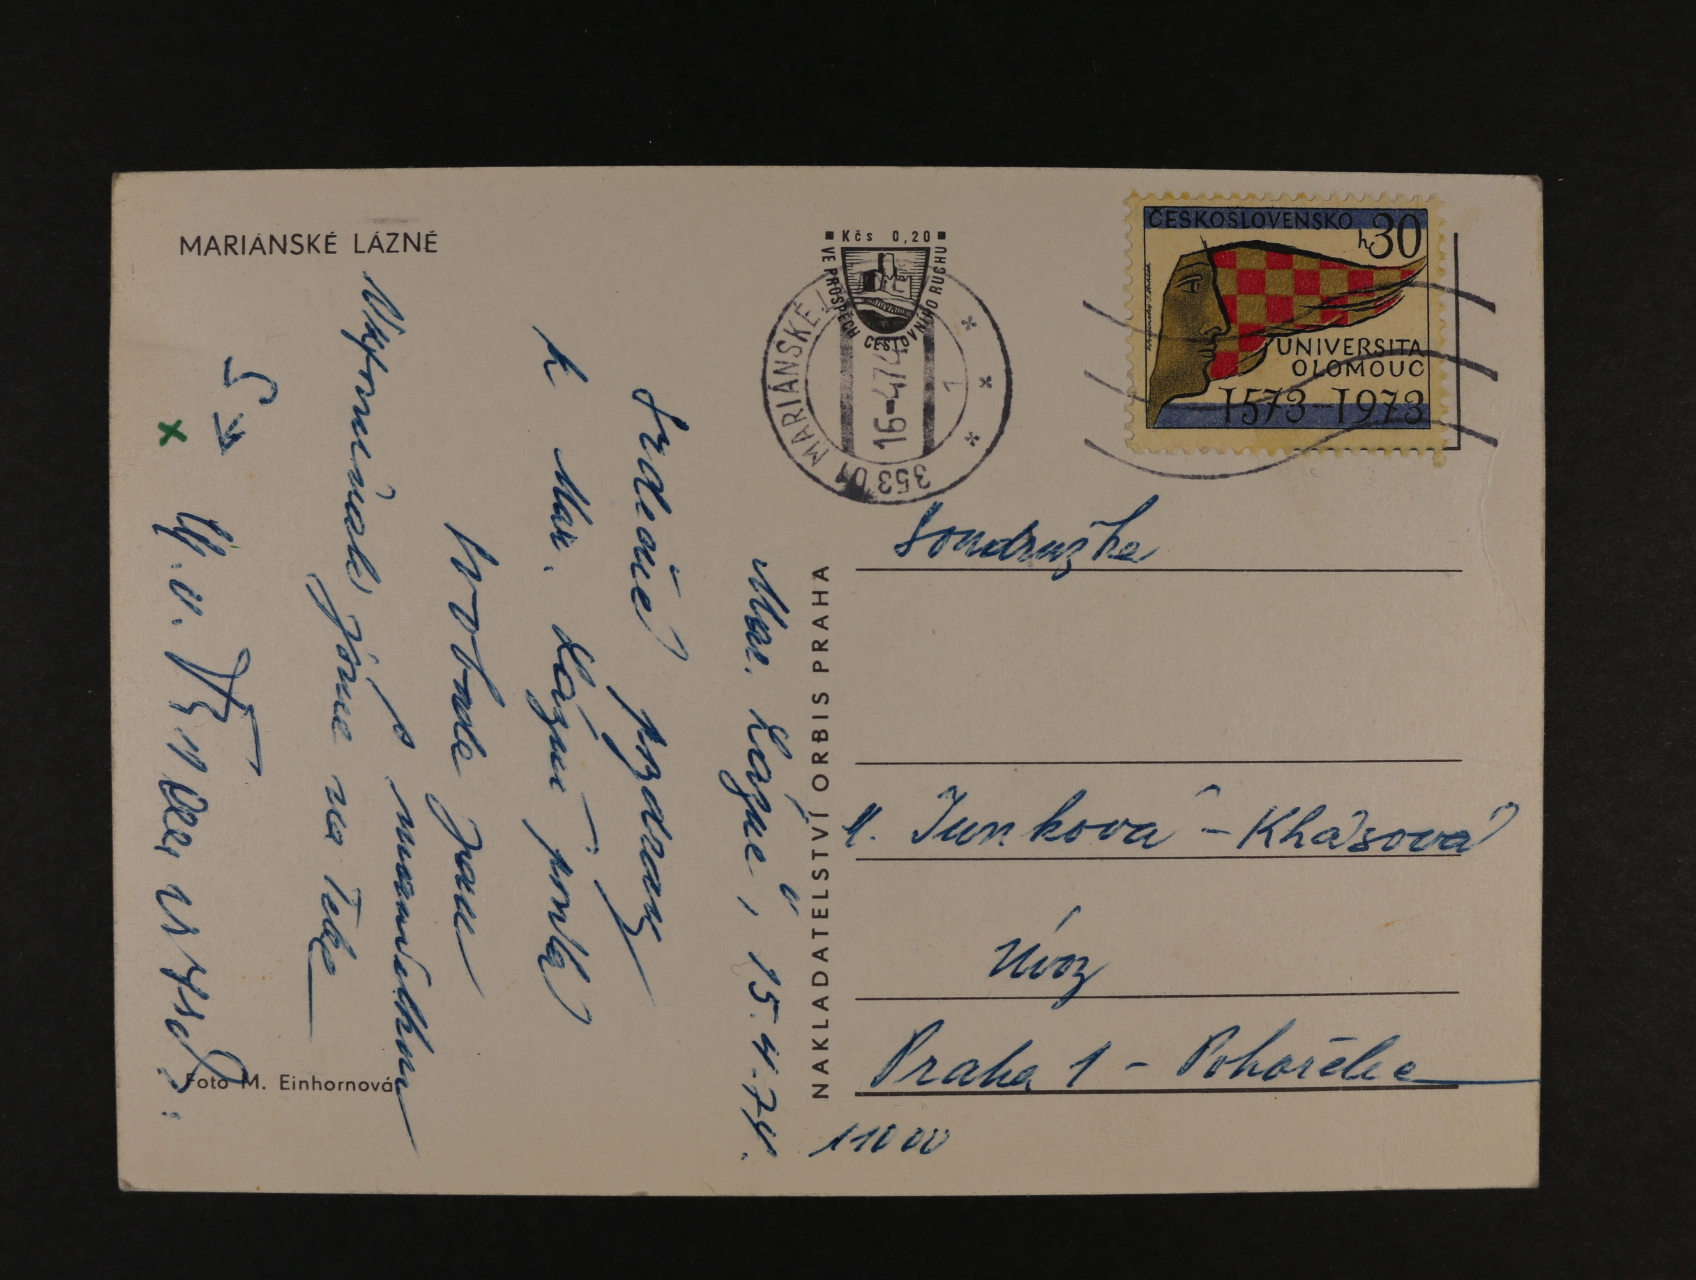 MARIÁNSKÉ LÁZNĚ
Mar. Lázně, 15.4.74.
Srdečné pozdravy
z Mar. Lázní posílá
s manželkou
Vzpomínali jsme na Tebe
Foto M. Einhornová
NAKLADATELSTVÍ ORBIS PRAHA
Kčs 0,20
VE PROSPĚCH CESTOVNÍHO RUCHU
MARIÁNSKÉ L
16.-4.74
1
353 01
ČESKOSLOVENSKO
h 30
UNIVERSITA
OLOMOUC
1573-1973
Soudružka
M. Junková-Khásová
Úvoz
Praha 1 - Pohořelec
11000